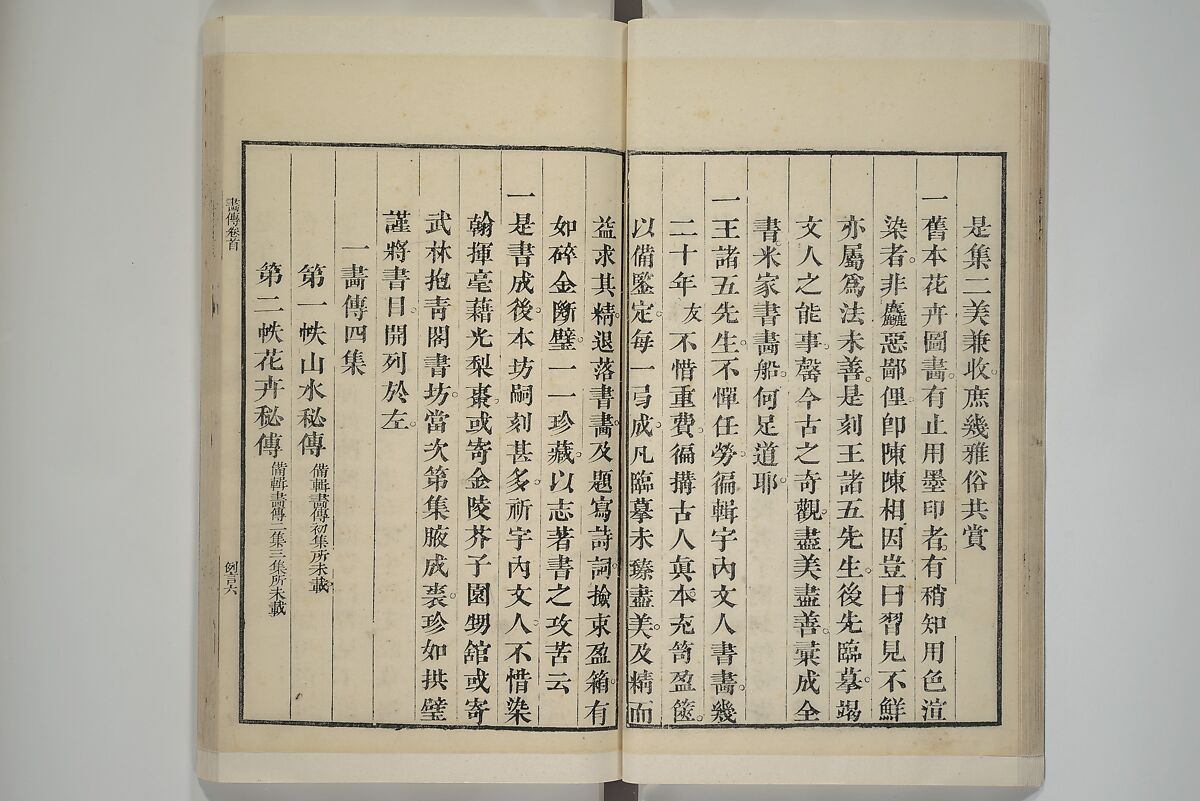 是集二美兼收庶幾雅俗共賞
一舊本花卉圖畵有止用墨印者有稍知用色渲
染者非麤惡鄙俚卽陳陳相因豈曰習見不鮮
亦屬爲法未善是刻王諸五先生後先臨摹竭
文人之能事罄今古之奇觀盡美盡善彙成全
書米家書畵船何足道耶
一王諸五先生不憚任勞徧輯宇內文人書畵幾
二十年友不惜重費徧搆古人眞本充笥盈篋
以備鑒定每一弓成凡臨摹未臻盡美及精而
益求其精退落書畵及題寫詩詞撿束盈箱有
如碎金斷璧一一珍藏以志著書之攻苦云
一是書成後本坊嗣刻甚多祈宇內文人不惜染
翰揮毫藉光梨棗或寄金陵芥子園甥舘或寄
武林抱靑閣書坊當次第集腋成裘珍如拱璧
謹將書目開列於左
一畵傳四集
第一帙山水秘傳 備輯畵傳初集所未載
第二帙花卉秘傳 備輯畵傳二集三集所未載
畵傳卷首
例言六